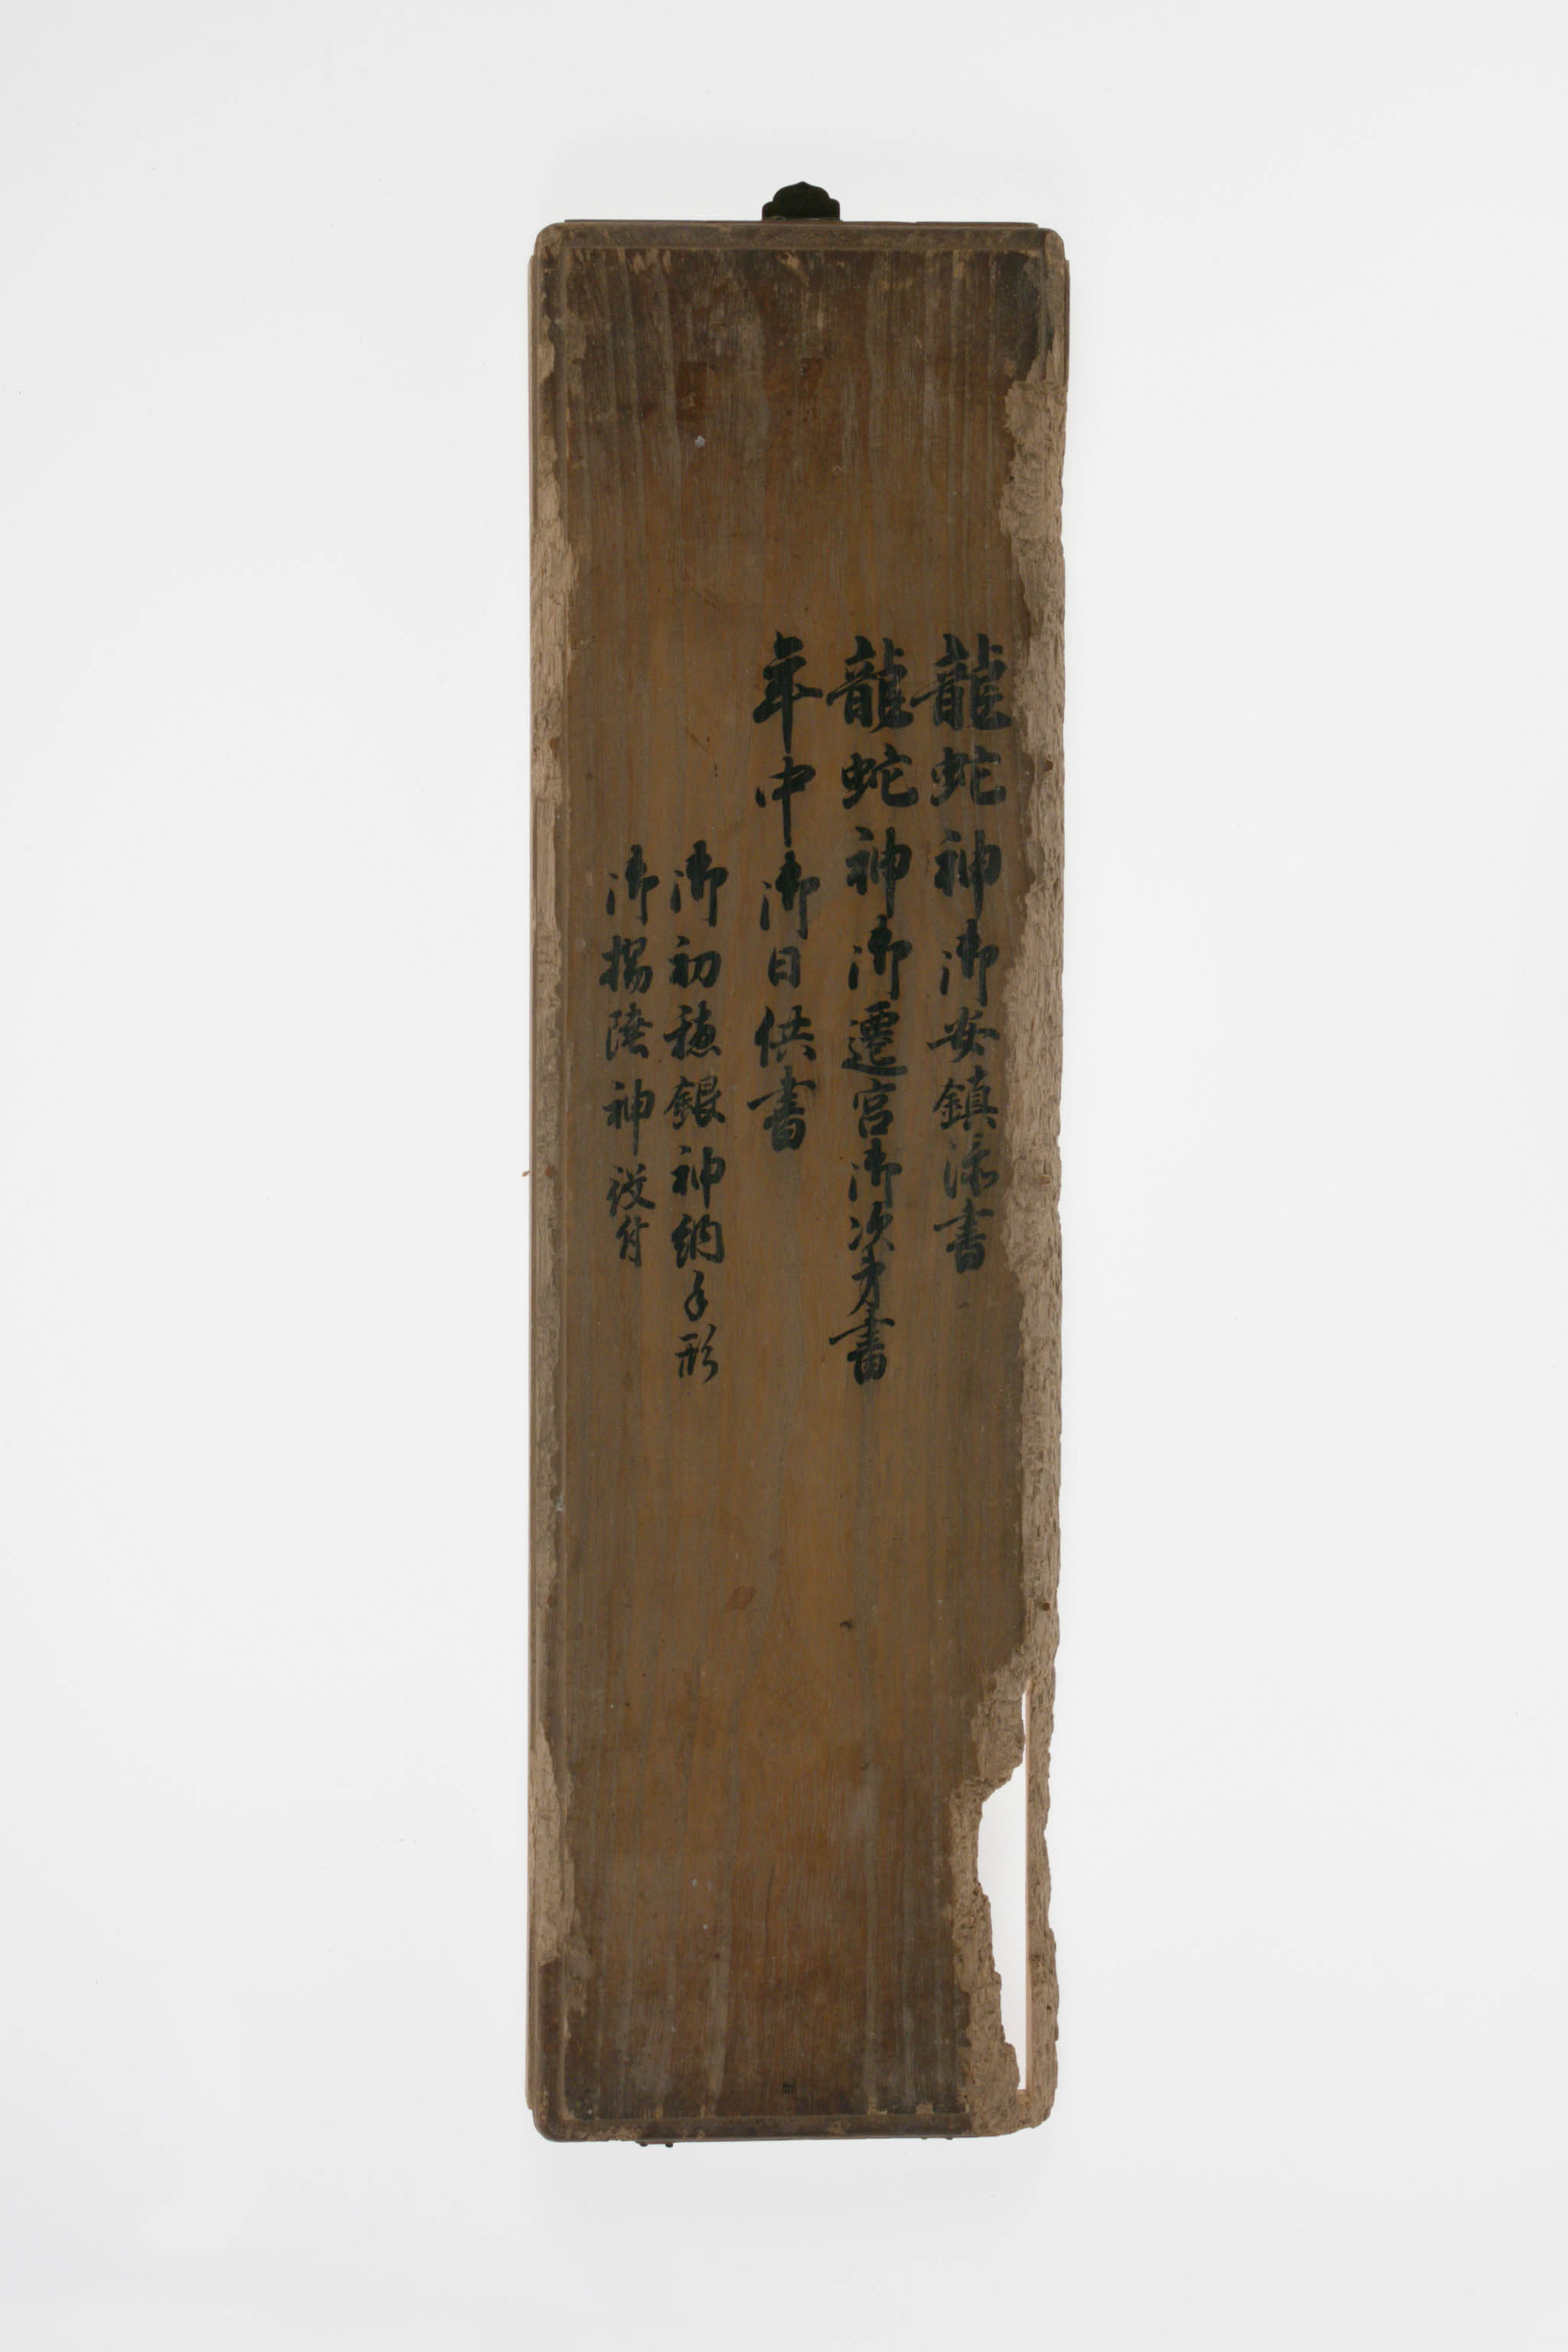 龍蛇神御安鎮添書
龍蛇神御遷宮御次㐧書
年中御日供書
御初穂銀神納手形
御揚陸神